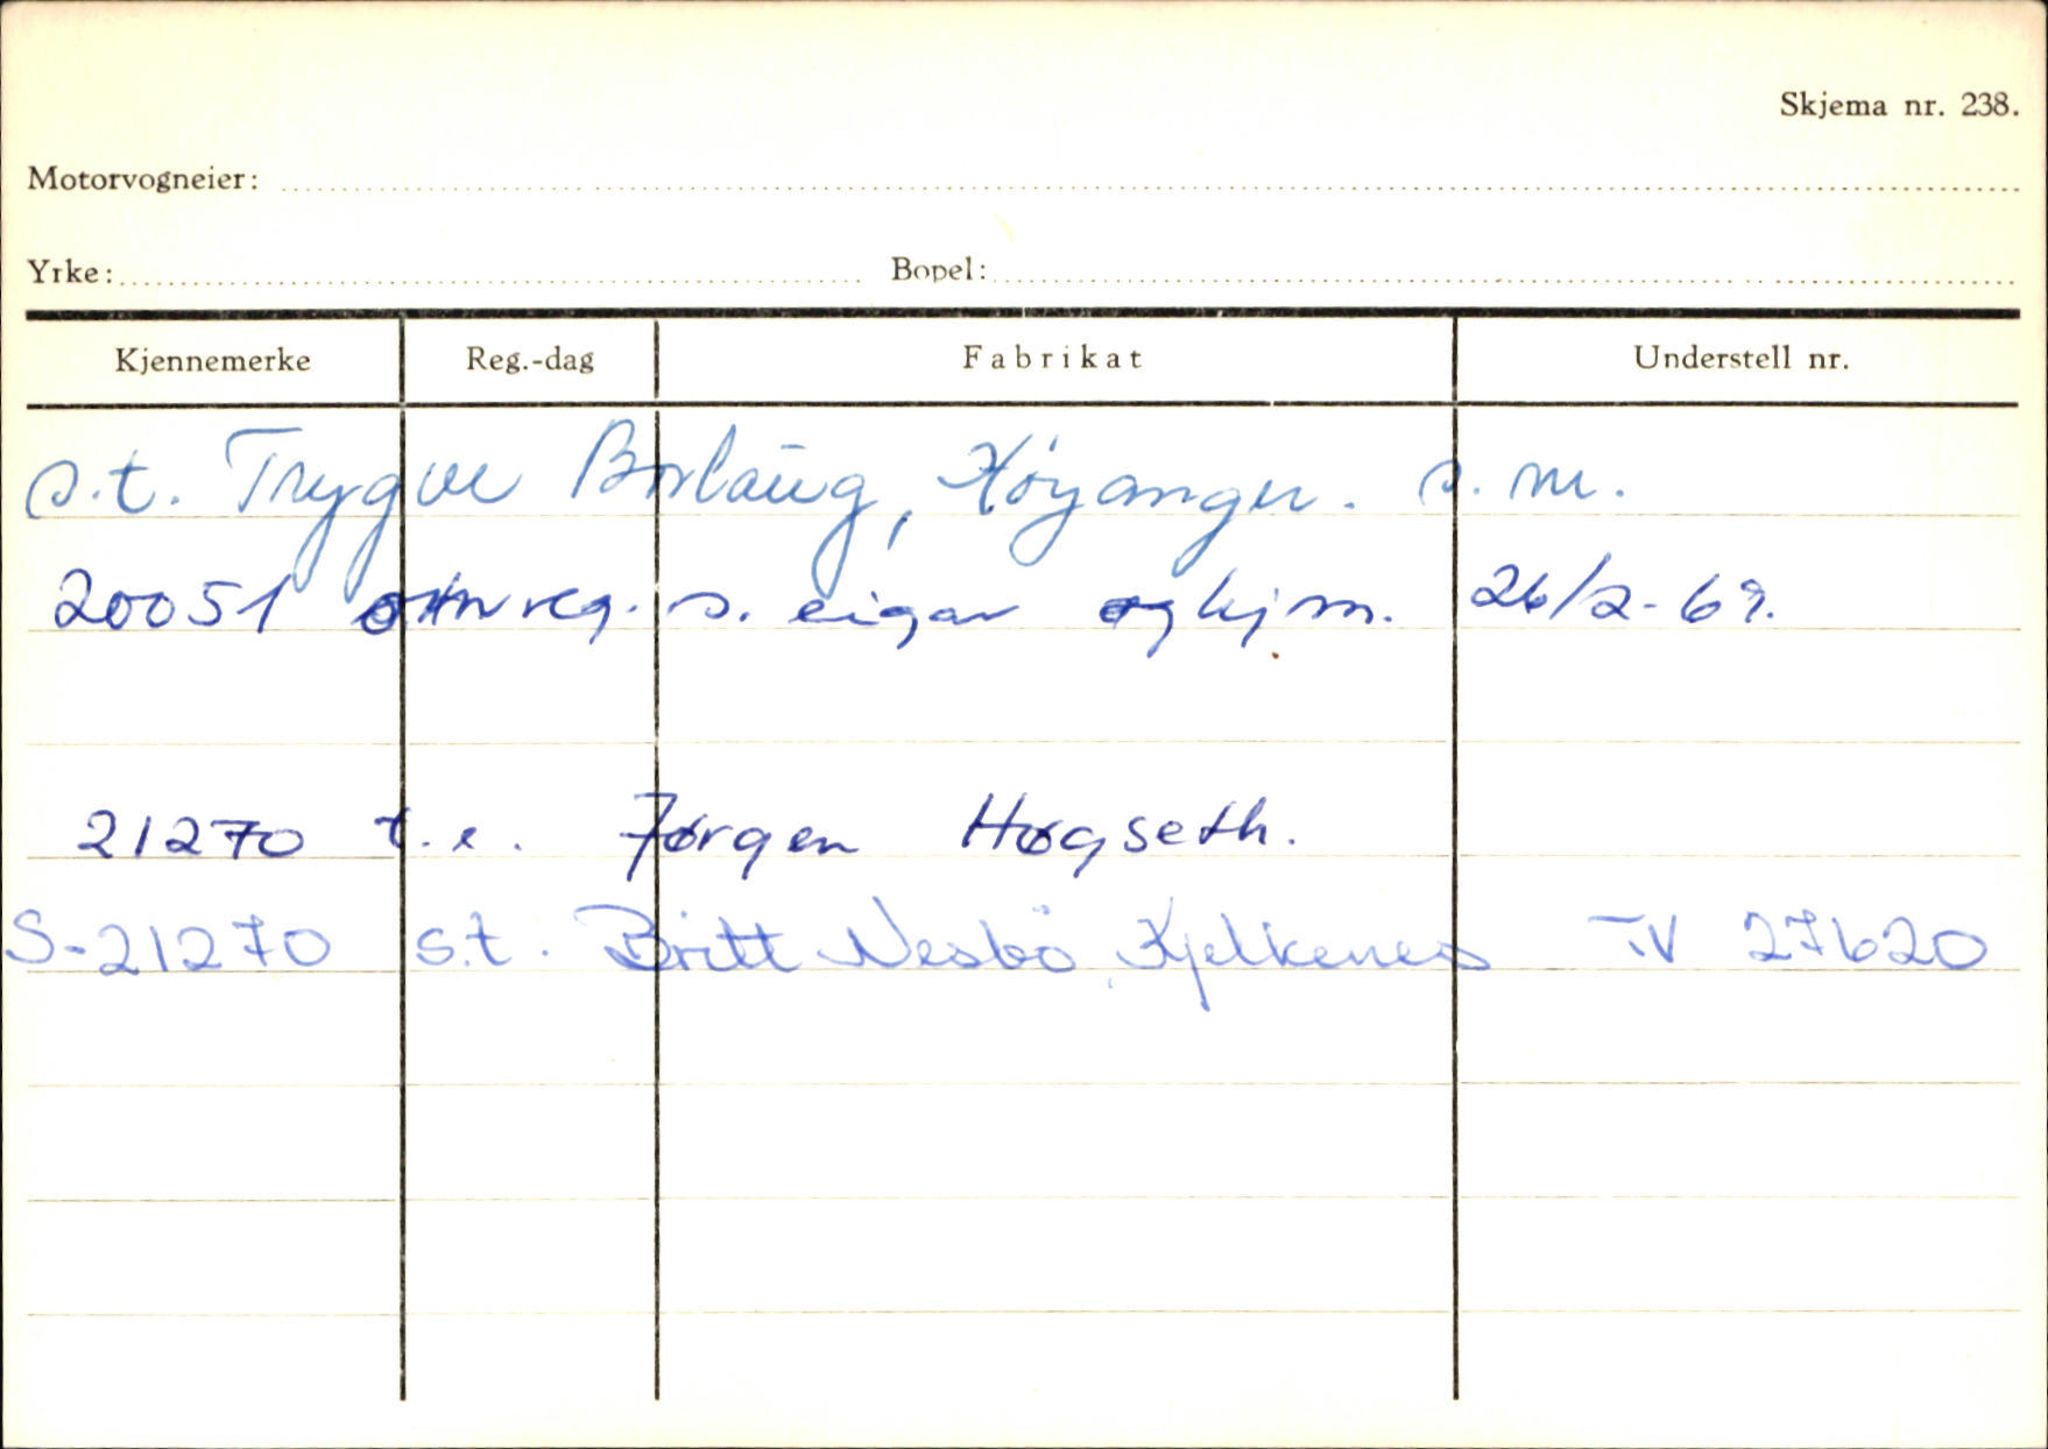 Skjema nr. 238.
Motorvogneier:
Yrke: Bopel:
Kjennemerke Reg.-dag Fabrikat Understell nr.
s.t. Trygve Borlaug, Höyanger. s. nr.
20051 omreg. s. eigar og kjm. 26/2-69.
21270 t.e. Jørgen Høgseth.
S-21270 s.t. Britt Nesbö, Kjelkenes TV 27620